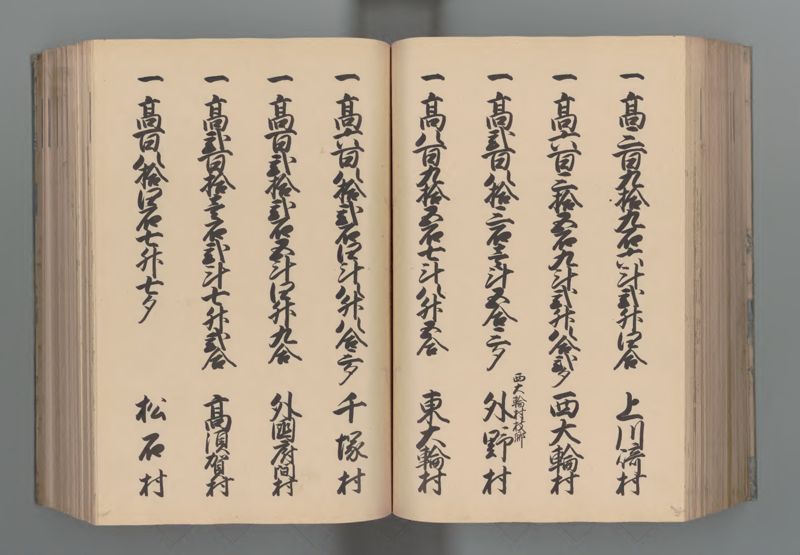 一 高三百九拾九石六斗弐升四合 上川崎村
一 高六百三拾五石九斗弐升八合弐夕 西大輪村
西大輪村枝郷
一 高弐百八拾三石壱斗五合三夕 外野村
一 高八百九拾五石七斗八升五合 東大輪村
一 高六百八拾弐石四斗八升八合三夕 千塚村
一 高百弐拾弐石五斗四升九合 外國府間村
一 高弐百拾壱石弐斗七升弐合 高須賀村
一 高百八拾四石七升七夕 松石村